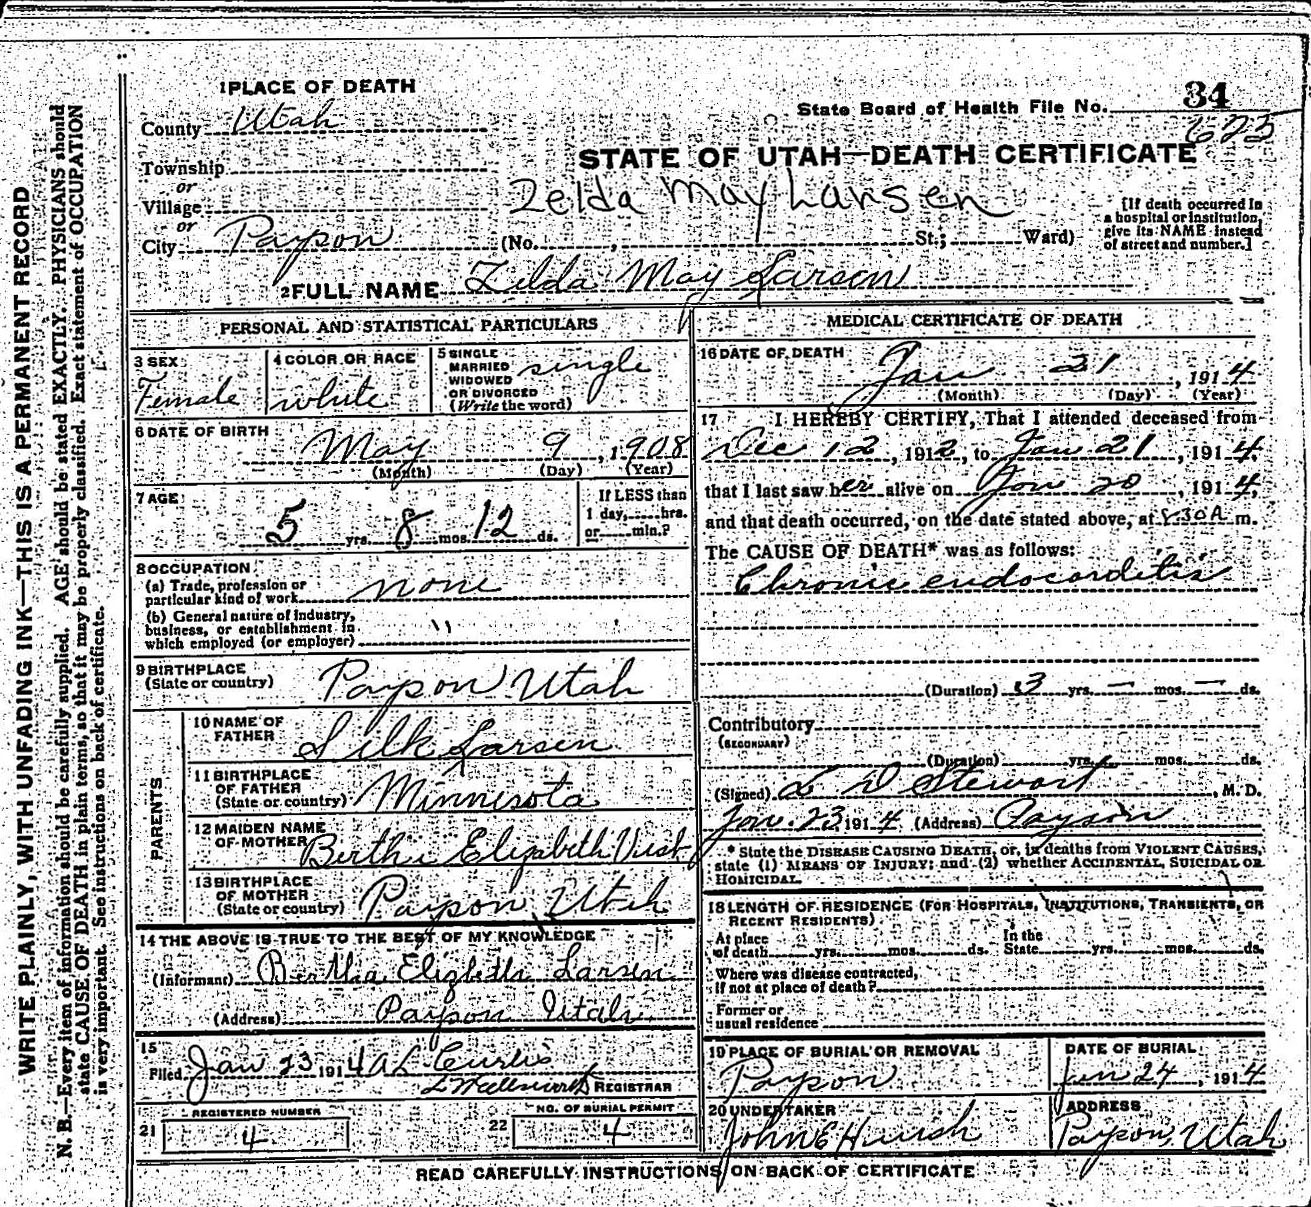 WRITE PLAINLY, WITH UNFADING INK—THIS IS A PERMANENT RECORD
N. B.—Every item of information should be carefully supplied. AGE should be stated EXACTLY. PHYSICIANS should
state CAUSE OF DEATH in plain terms, so that it may be properly classified. Exact statement of OCCUPATION
is very important. See instructions on back of certificate.
1 PLACE OF DEATH
County Utah
Township
or
Village
or
City Payson (No. , St.; Ward)
State Board of Health File No. 34
625
STATE OF UTAH—DEATH CERTIFICATE
Zelda May Larsen
[If death occurred in
a hospital or institution,
give its NAME instead
of street and number.]
2 FULL NAME Zelda May Larsen
PERSONAL AND STATISTICAL PARTICULARS
3 SEX
Female
4 COLOR OR RACE
white
5 SINGLE
MARRIED
WIDOWED
OR DIVORCED
(Write the word)
single
6 DATE OF BIRTH
May 9, 1908
(Month) (Day) (Year)
7 AGE
5 yrs. 8 mos. 12 ds.
If LESS than
1 day, hrs.
or min.?
8 OCCUPATION
(a) Trade, profession or
particular kind of work none
(b) General nature of industry,
business, or establishment in
which employed (or employer) "
9 BIRTHPLACE
(State or country) Payson Utah
PARENTS
10 NAME OF
FATHER Silk Larsen
11 BIRTHPLACE
OF FATHER
(State or country) Minnesota
12 MAIDEN NAME
OF MOTHER Bertha Elizabeth
13 BIRTHPLACE
OF MOTHER
(State or country) Payson Utah
14 THE ABOVE IS TRUE TO THE BEST OF MY KNOWLEDGE
(Informant) Bertha Elizbeth Larsen
(Address) Payson Utah
15
Filed Jan 23 1914 A L Curtis
REGISTRAR
21 REGISTERED NUMBER
4
22 NO. OF BURIAL PERMIT
4
MEDICAL CERTIFICATE OF DEATH
16 DATE OF DEATH
Jan 21, 1914
(Month) (Day) (Year)
17 I HEREBY CERTIFY, That I attended deceased from
Dec 12, 1912, to Jan 21, 1914,
that I last saw her alive on Jan 20, 1914,
and that death occurred, on the date stated above, at 8.30 A m.
The CAUSE OF DEATH* was as follows:
Chronic endocarditis
(Duration) 3 yrs. — mos. — ds.
Contributory
(SECONDARY)
(Duration) yrs. mos. ds.
(Signed) L D Stewart, M. D.
Jan. 23 1914 (Address) Payson
* State the DISEASE CAUSING DEATH, or, in deaths from VIOLENT CAUSES,
state (1) MEANS OF INJURY; and (2) whether ACCIDENTAL, SUICIDAL OR
HOMICIDAL.
18 LENGTH OF RESIDENCE (FOR HOSPITALS, INSTITUTIONS, TRANSIENTS, OR
RECENT RESIDENTS)
At place
of death yrs. mos. ds.
In the
State yrs. mos. ds.
Where was disease contracted,
if not at place of death?
Former or
usual residence
19 PLACE OF BURIAL OR REMOVAL
Payson
DATE OF BURIAL
Jan 24, 1914
20 UNDERTAKER
John E Huish
ADDRESS
Payson, Utah
READ CAREFULLY INSTRUCTIONS ON BACK OF CERTIFICATE